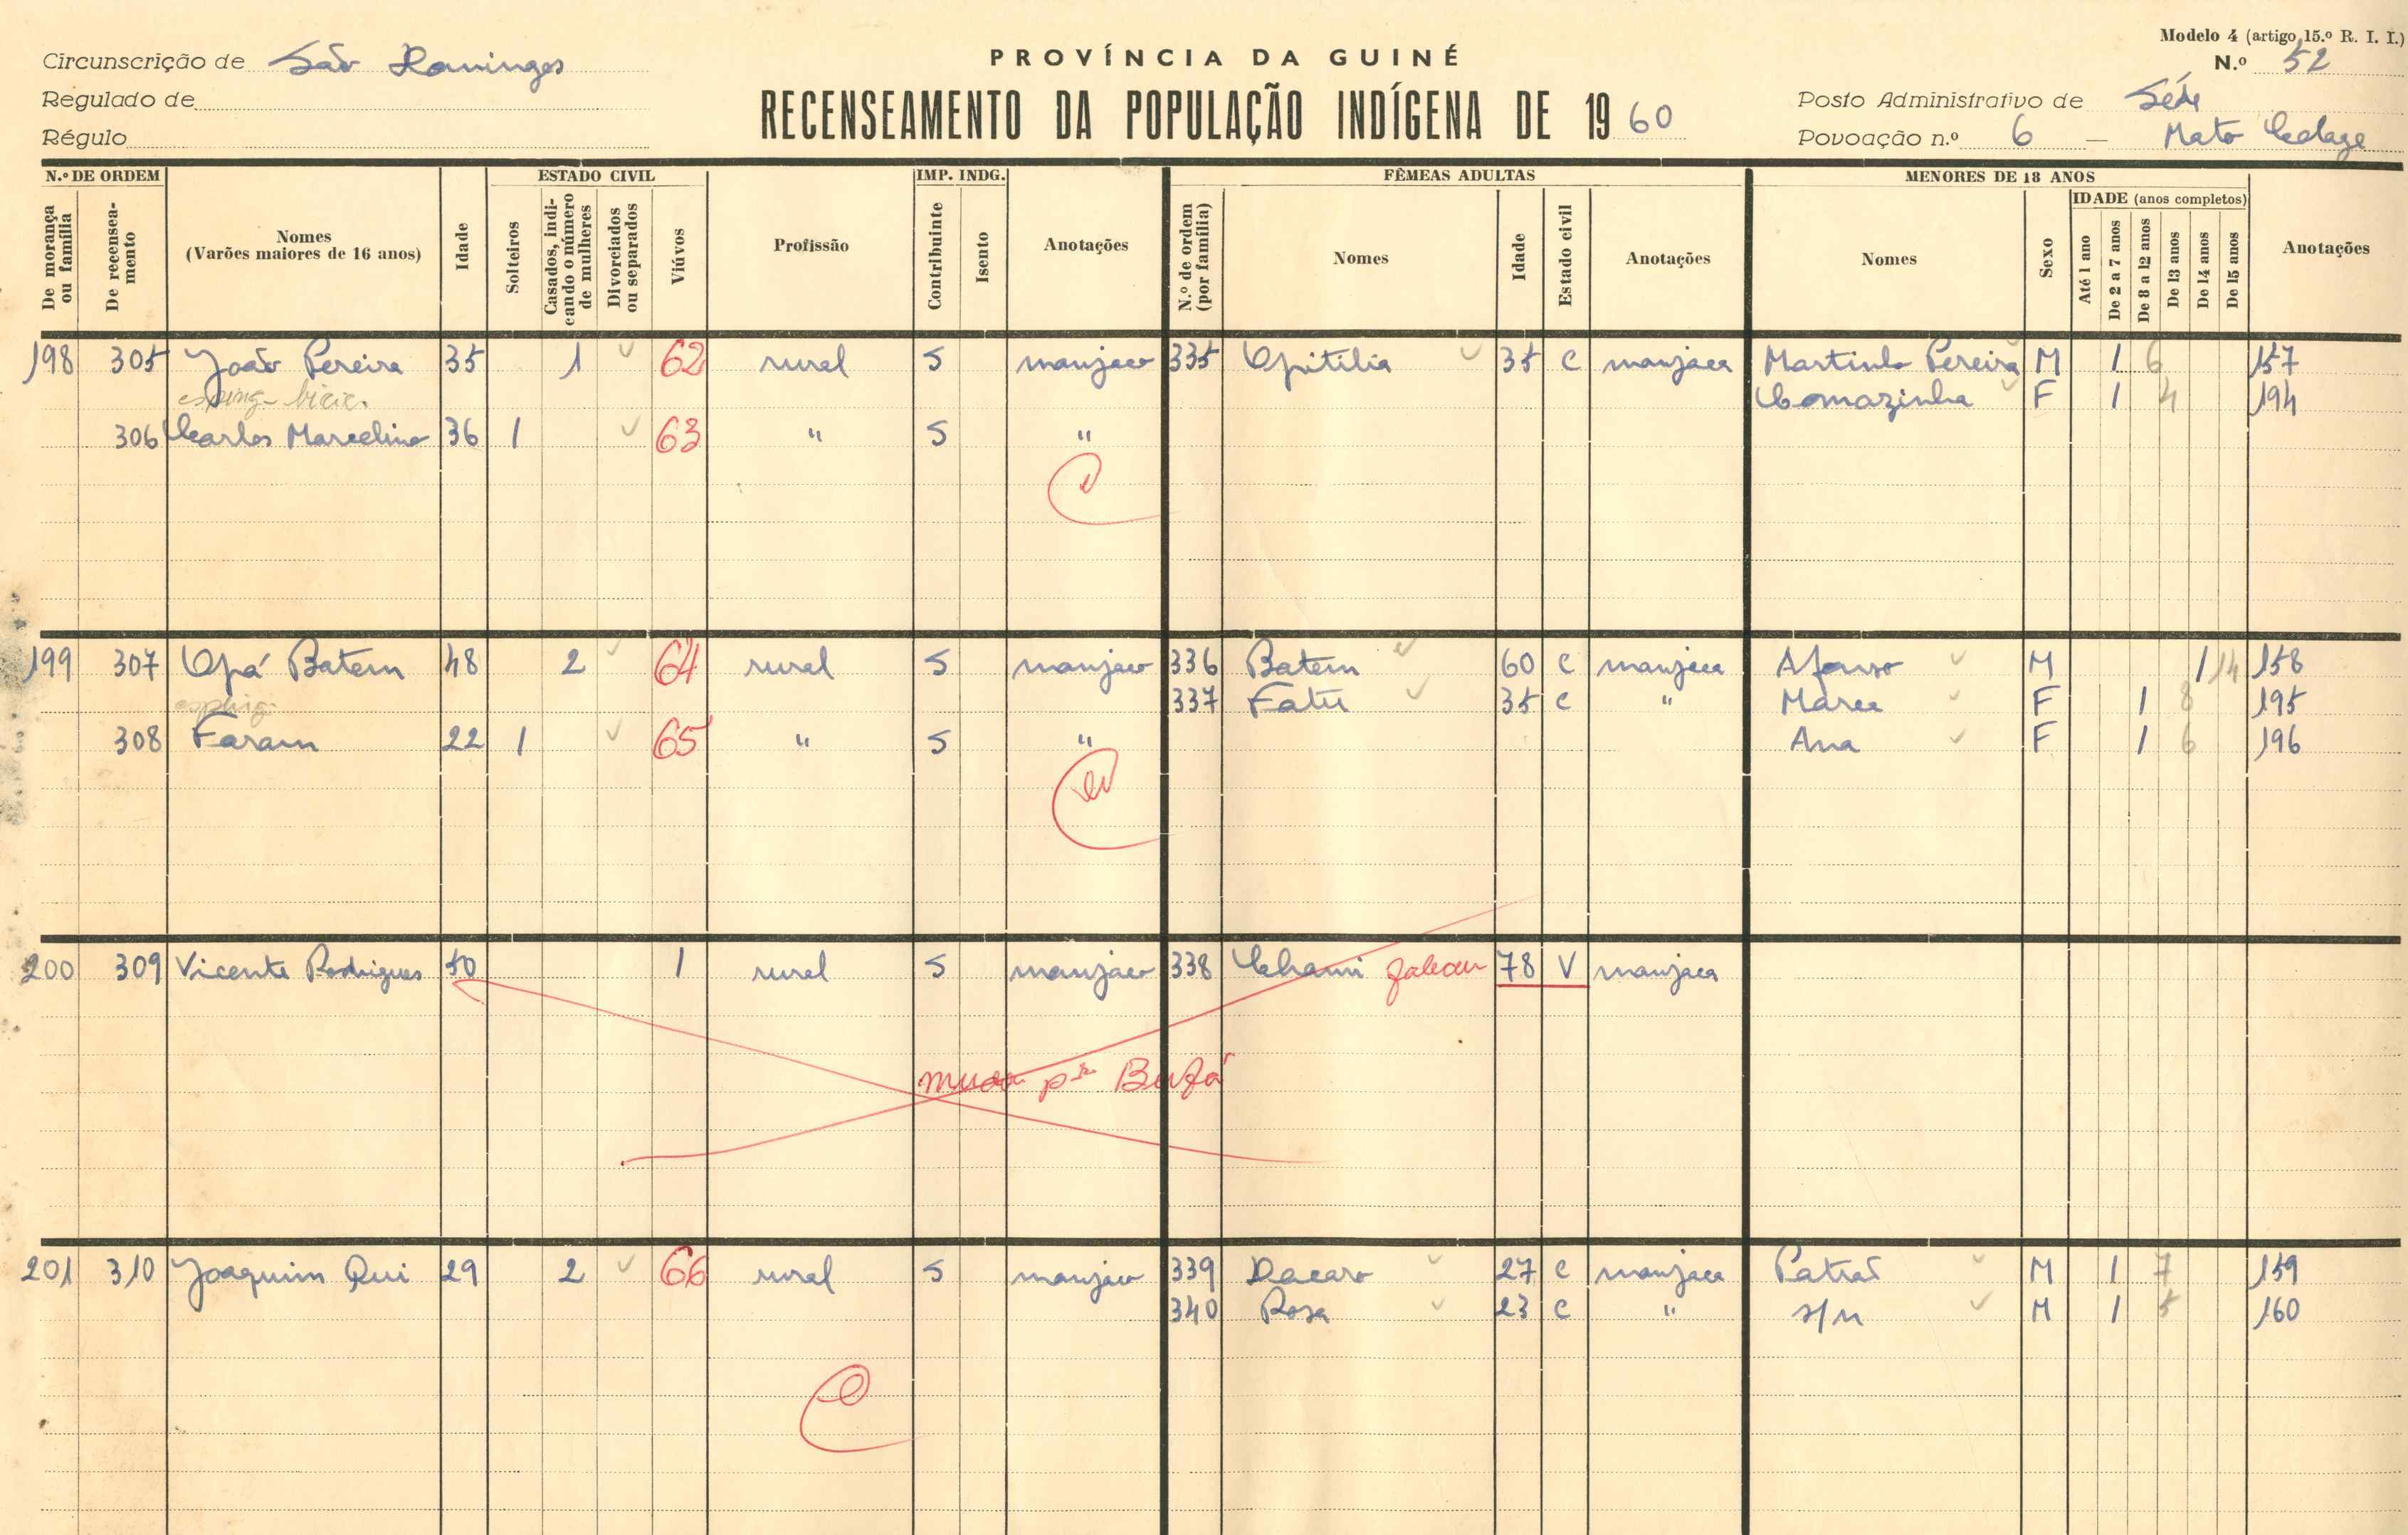 Modelo 4 (artigo 15.º R. I. I.)
Circunscrição de São Domingos
PROVÍNCIA DA GUINÉ
N.º 52
Regulado de
RECENSEAMENTO DA POPULAÇÃO INDÍGENA DE 1960
Posto Administrativo de Séde
Régulo
Povoação n.º 6 — Mato
N.º DE ORDEM
ESTADO CIVIL
IMP. INDG.
FÊMEAS ADULTAS
MENORES DE 18 ANOS
IDADE (anos completos)
De morança ou família
De recenseamento
Nomes
(Varões maiores de 16 anos)
Idade
Solteiros
Casados, indicando o número de mulheres
Divorciados ou separados
Viúvos
Profissão
Contribuinte
Isento
Anotações
N.º de ordem (por família)
Nomes
Idade
Estado civil
Anotações
Nomes
Sexo
Até 1 ano
De 2 a 7 anos
De 8 a 12 anos
De 13 anos
De 14 anos
De 15 anos
Anotações
198 305 João Pereira 35 1 62 rural S manjaco 335 35 C manjaca Martinho Pereira M 1 6 157
F 1 4 194
306 Carlos Marcelino 36 1 63 " S "
199 307 Batem 48 2 64 rural S manjaco 336 Batem 60 C manjaca Afonso M 1 14 158
337 Fatu 35 C " F 1 8 195
308 Faram 22 1 65 " S " Ana F 1 6 196
200 309 Vicente Rodrigues 50 1 rural S manjaco 338 78 V manjaca
p.ª Bufá
201 310 Joaquim Qui 29 2 66 rural S manjaco 339 Dacaro 27 C manjaca M 1 7 159
340 Rosa 23 C " s/n M 1 5 160